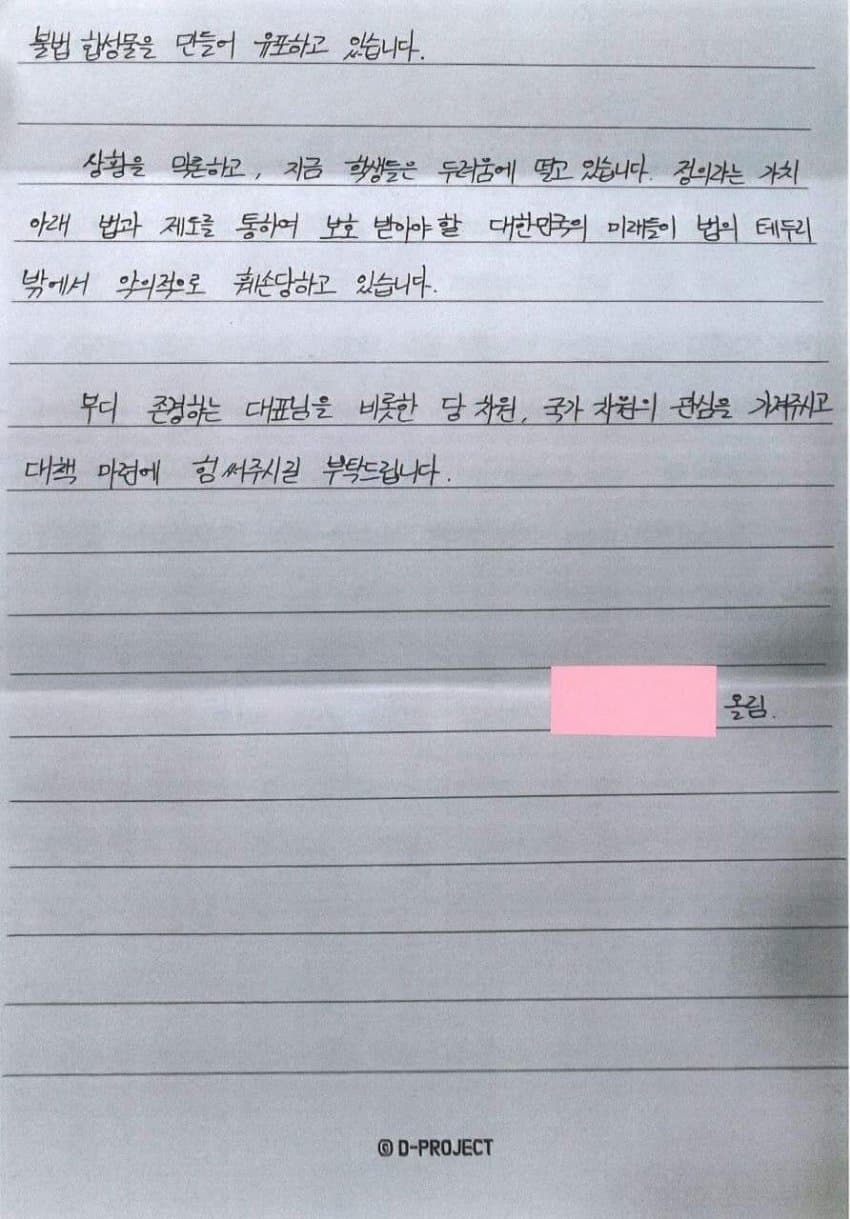 불법 합성물을 만들어 유포하고 있습니다.
상황을 막론하고, 지금 학생들은 두려움에 떨고 있습니다. 정의라는 가치
아래 법과 제도를 통하여 보호 받아야 할 대한민국의 미래들이 법의 테두리
밖에서 악의적으로 훼손당하고 있습니다.
부디 존경하는 대표님을 비롯한 당 차원, 국가 차원의 관심을 가져주시고
대책 마련에 힘 써주시길 부탁드립니다.
올림.
© D-PROJECT